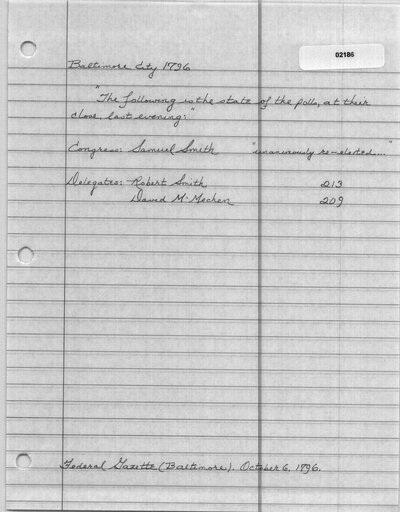 02186
Baltimore City 1796
"The following is the state of the polls, at their
close, last evening:"
Congress: Samuel Smith "unanimously re-elected..."
Delegates: Robert Smith 213
David McMechen 209
Federal Gazette (Baltimore). October 6, 1796.